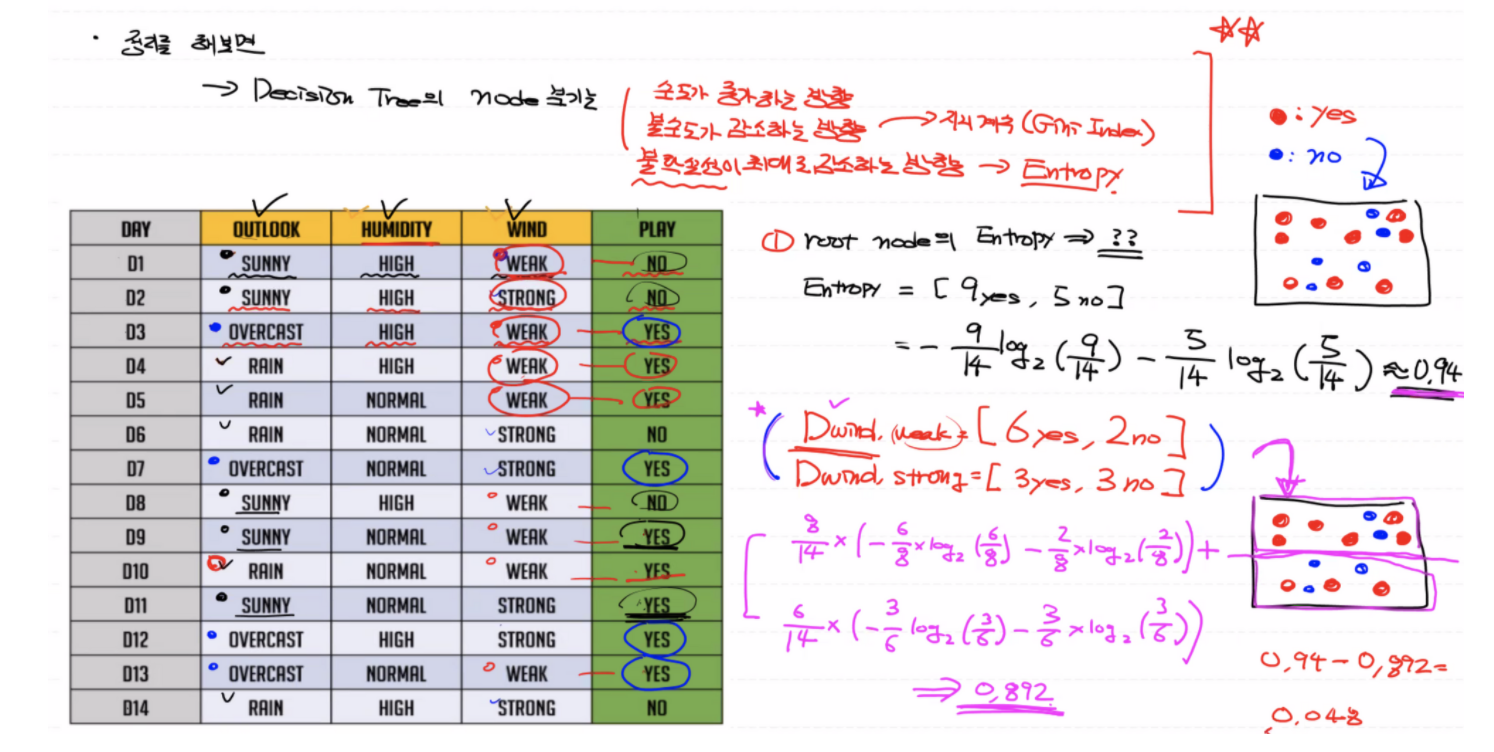 · 정리를 해보면
→ Decision Tree의 node 분기는
순도가 증가하는 방향
불순도가 감소하는 방향 → 지니계수 (Gini Index)
불확실성이 최대로 감소하는 방향 → Entropy
●: yes
●: no
DAY OUTLOOK HUMIDITY WIND PLAY
D1 SUNNY HIGH WEAK NO
D2 SUNNY HIGH STRONG NO
D3 OVERCAST HIGH WEAK YES
D4 RAIN HIGH WEAK YES
D5 RAIN NORMAL WEAK YES
D6 RAIN NORMAL STRONG NO
D7 OVERCAST NORMAL STRONG YES
D8 SUNNY HIGH WEAK NO
D9 SUNNY NORMAL WEAK YES
D10 RAIN NORMAL WEAK YES
D11 SUNNY NORMAL STRONG YES
D12 OVERCAST HIGH STRONG YES
D13 OVERCAST NORMAL WEAK YES
D14 RAIN HIGH STRONG NO
① root node의 Entropy ⇒ ??
Entropy = [9yes, 5no]
= - 9/14 log₂(9/14) - 5/14 log₂(5/14) ≈ 0.94
Dwind. (weak) = [6yes, 2no]
Dwind. strong = [3yes, 3no]
8/14 × (-6/8 × log₂(6/8) - 2/8 × log₂(2/8)) +
6/14 × (-3/6 log₂(3/6) - 3/6 × log₂(3/6))
⇒ 0,892
0,94 - 0,892 =
0.048